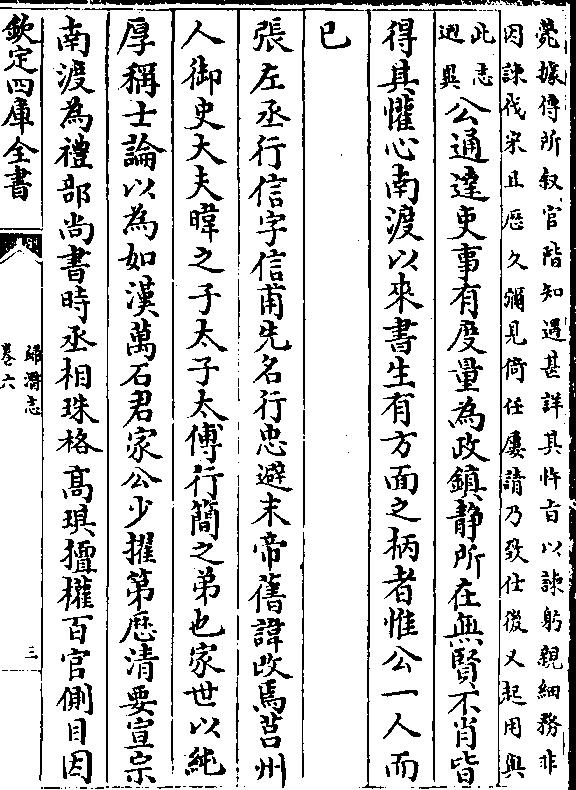 薨據傳所叙官階知遇甚詳其忤旨以諫躬親細務非
因諫伐宋且歴久彌見倚任屢請乃致仕後又起用與
此志
迥異
公通達吏事有度量為政鎮静所在無賢不肖皆
得其懽心南渡以來書生有方面之柄者惟公一人而
已
張左丞行信字信甫先名行忠避末帝舊諱改焉莒州
人御史大夫暐之子太子太傅行簡之弟也家世以純
厚稱士論以為如漢萬石君家公少擢第歴清要宣宗
南渡為禮部尚書時丞相珠格高琪擅權百官側目因
欽定四庫全書
歸潛志
卷六
三